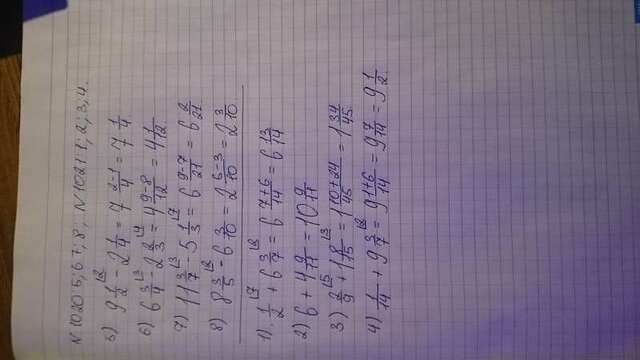 N 1020 5; 6 7; 8; N 1021 1; 2; 3; 4.
5) 9 1/2 ⌊2 - 2 1/4 = 7 2-1/4 = 7 1/4
6) 6 3/4 ⌊3 - 2 2/3 ⌊4 = 4 9-8/12 = 4 1/12.
7) 11 3/7 ⌊3 - 5 1/3 ⌊7 = 6 9-7/21 = 6 2/21
8) 8 3/5 ⌊2 - 6 3/10 = 2 6-3/10 = 2 3/10
1). 1/2 ⌊7 + 6 3/7 ⌊2 = 6 7+6/14 = 6 13/14
2) 6 + 4 9/11 = 10 9/11
3) 2/9 ⌊5 + 1 8/15 ⌊3 = 1 10+24/45 = 1 34/45.
4) 1/14 + 9 3/7 ⌊2 = 9 1+6/14 = 9 7/14 = 9 1/2.